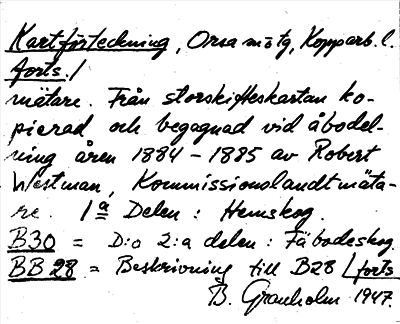 Kartförteckning, Orsa mötg, Kopparb. l.
forts./
mätare. Från storskifteskartan ko-
pierad och begagnad vid åbodel-
ning åren 1884 - 1885 av Robert
Westman, Kommissionslandtmäta-
re. 1a Delen: Hemskog.
B30 = D:o 2:a delen: Fäbodeskog.
BB28 = Beskrivning till B28 /forts
B. Granholm 1947.